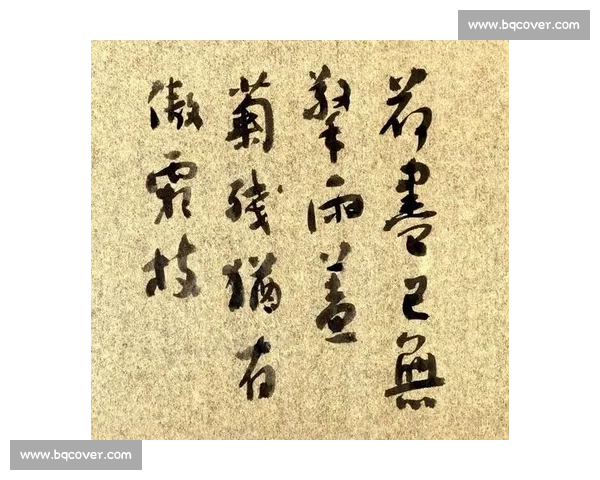 www.bqcover.com
荷盡已無
擎雨蓋
菊殘猶有
傲霜枝
www.bqcover.com